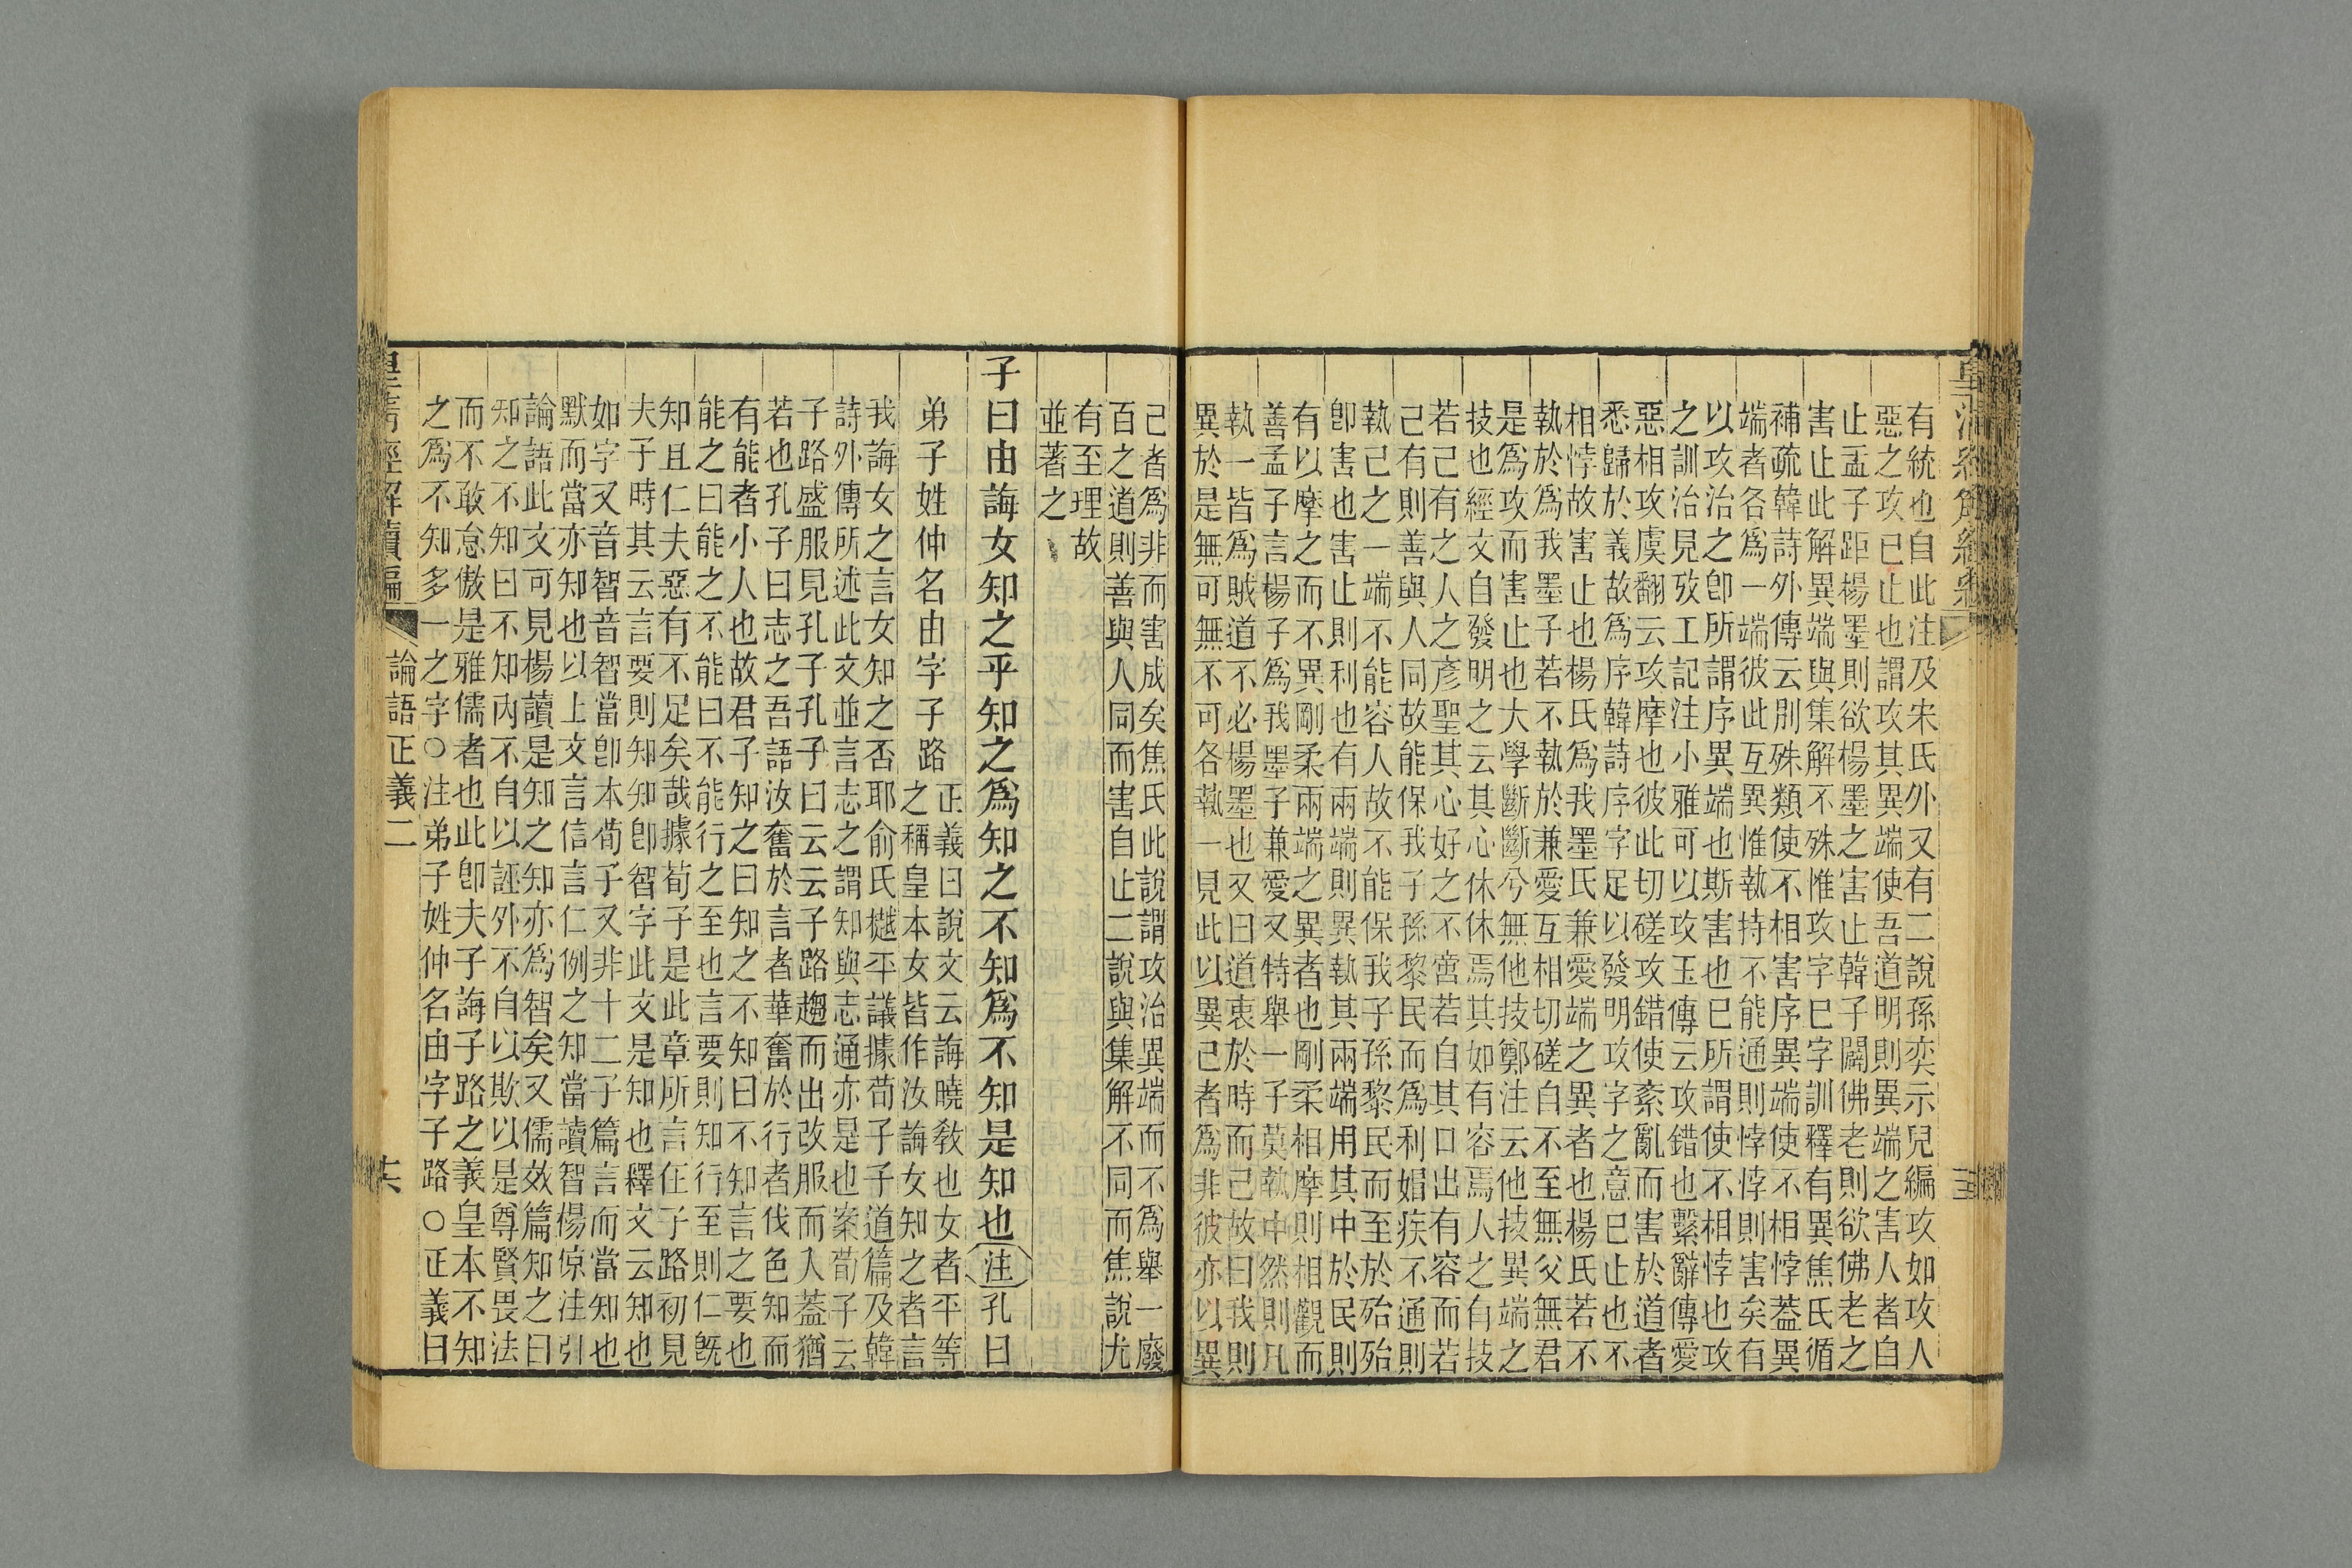 有統也自此注及宋氏外又有二說孫奕示兒編攻如攻人
惡之攻已止也謂攻其異端使吾道明則異端之害人者自
止孟子距楊墨則欲楊墨之害止韓子闢佛老則欲佛老之
害止此解異端與集解不殊惟攻字巳字訓釋有異焦氏循
補疏韓詩外傳云別殊類使不相害序異端使不相悖葢異
端者各爲一端彼此互異惟執持不能通則悖悖則害矣有
以攻治之卽所謂序異端也斯害也已所謂使不相悖也攻
之訓治見攷工記注小雅可以攻玉傳云攻錯也繫辭傳愛
惡相攻虞翻云攻摩也彼此切磋攻錯使紊亂而害於道者
悉歸於義故爲序韓詩序字足以發明攻字之意已止也不
相悖故害止也楊氏爲我墨氏兼愛端之異者也楊氏若不
執於爲我墨子若不執於兼愛互相切磋自不至無父無君
是爲攻而害止也大學斷斷兮無他技鄭注云他技異端之
技也經文自發明之云其心休休焉其如有容焉人之有技
若己有之人之彥聖其心好之不啻若自其口出有容而若
己有則善與人同故能保我子孫黎民而爲利媢疾不通則
執己之一端不能容人故不能保我子孫黎民而至於殆殆
卽害也害止則利也有兩端則異執其兩端用其中於民則
有以摩之而不異剛柔兩端之異者也剛柔相摩則相觀而
善孟子言楊子爲我墨子兼愛又特舉一子莫執中然則凡
執一皆爲賊道不必楊墨也又曰道衷於時而已故曰我則
異於是無可無不可各執一見此以異己者爲非彼亦以異
己者爲非而害成矣焦氏此說謂攻治異端而不爲舉一廢
百之道則善與人同而害自止二說與集解不同而焦說尤
有至理故
並著之
子曰由誨女知之乎知之爲知之不知爲不知是知也注孔曰
弟子姓仲名由字子路
正義曰說文云誨曉教也女者平等
之稱皇本女皆作汝誨女知之者言
我誨女之言女知之否耶俞氏樾平議據荀子子道篇及韓
詩外傳所述此文並言志之謂知與志通亦是也案荀子云
子路盛服見孔子孔子曰云云子路趨而出改服而入葢猶
若也孔子曰志之吾語汝奮於言者華奮於行者伐色知而
有能者小人也故君子知之曰知之不知曰不知言之要也
能之曰能之不能曰不能行之至也言要則知行至則仁旣
知且仁夫惡有不足矣哉據荀子是此章所言在子路初見
夫子時其云言要則知知卽智字此文是知也釋文云知也
如字又音智音智當卽本荀子又非十二子篇言而當知也
默而當亦知也以上文言信言仁例之知當讀智楊倞注引
論語此文可見楊讀是知之知亦爲智矣又儒效篇知之曰
知之不知曰不知內不自以誣外不自以欺以是尊賢畏法
而不敢怠傲是雅儒者也此卽夫子誨子路之義皇本不知
之爲不知多一之字○注弟子姓仲名由字子路○正義曰
皇清經解續編
論語正義二